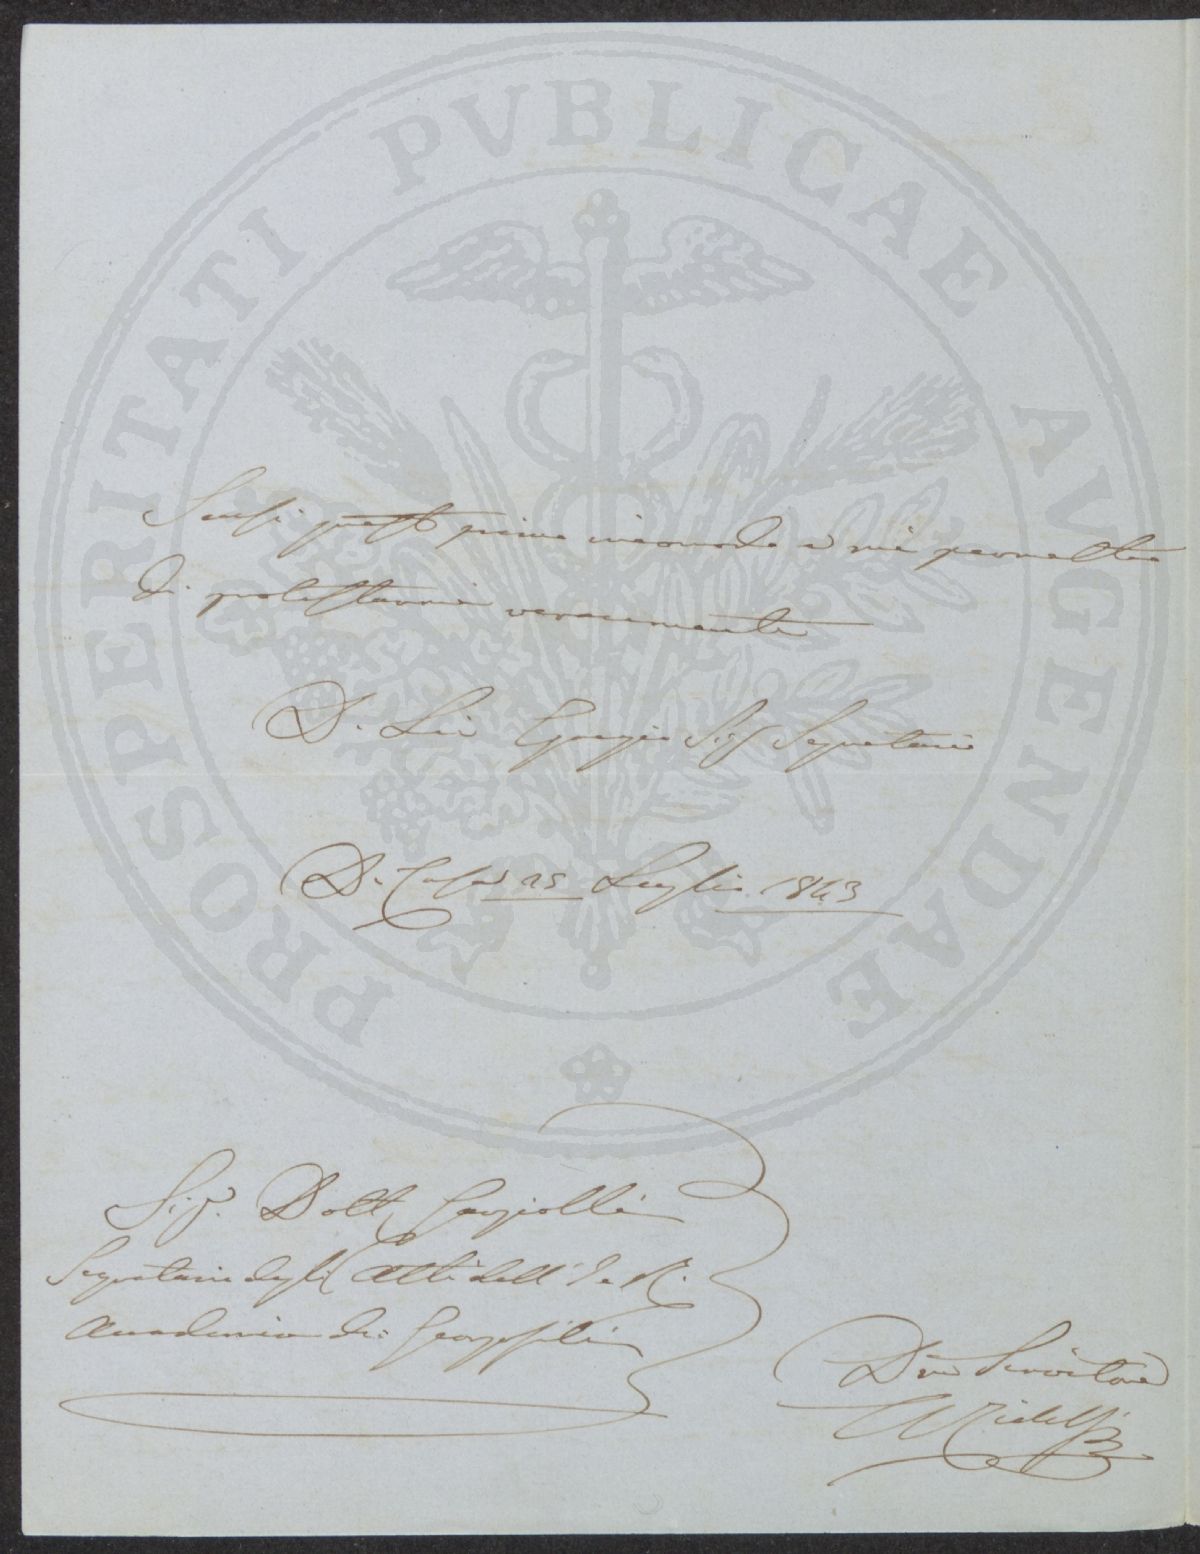 PROSPERITATI PVBLICAE AVGENDAE
Scusi questo primo incomodo e mi permetta
di protestarmi veracemente
Di Lei Egregio Sig Segretario
Di Casa 25 Luglio 1843
Sig. Dott
Segretario degli Atti dell' I e R.
Accademia dei Georgofili
Dev Servitore
Ridolfi